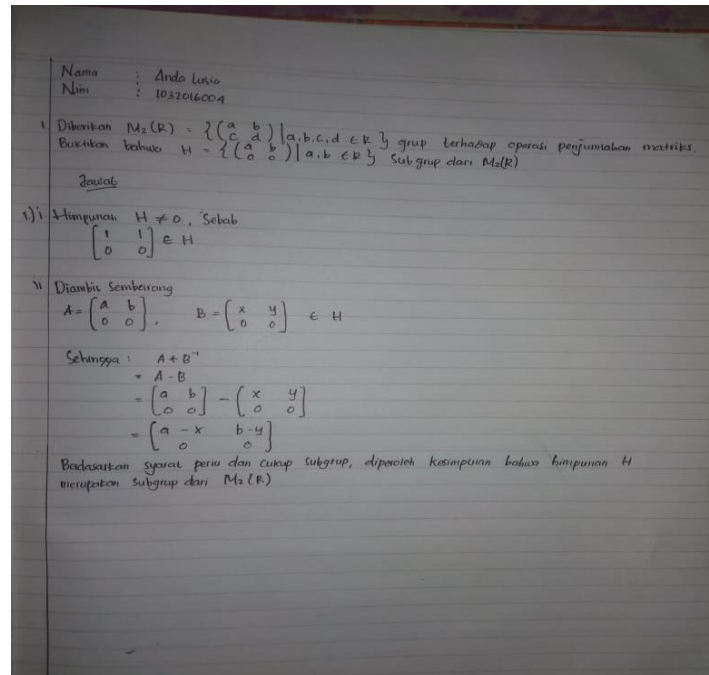 Nama : Anda Lusia
Nim : 1032016004
1 Diberikan M₂(R) = {(a b
c d) | a,b,c,d ∈ R} grup terhadap operasi penjumlahan matriks.
Buktikan bahwa H = {(a b
0 0) | a,b ∈ R} Subgrup dari M₂(R)
Jawab
1) i Himpunan H ≠ 0, Sebab
[1 1
0 0] ∈ H
ii Diambil Sembarang
A = [a b
0 0], B = [x y
0 0] ∈ H
Sehingga : A + B⁻¹
= A - B
= [a b
0 0] - [x y
0 0]
= [a - x b - y
0 0]
Badasarkan syarat perlu dan cukup Subgrup, diperoleh kesimpulan bahwa himpunan H
merupakan Subgrup dari M₂(R)